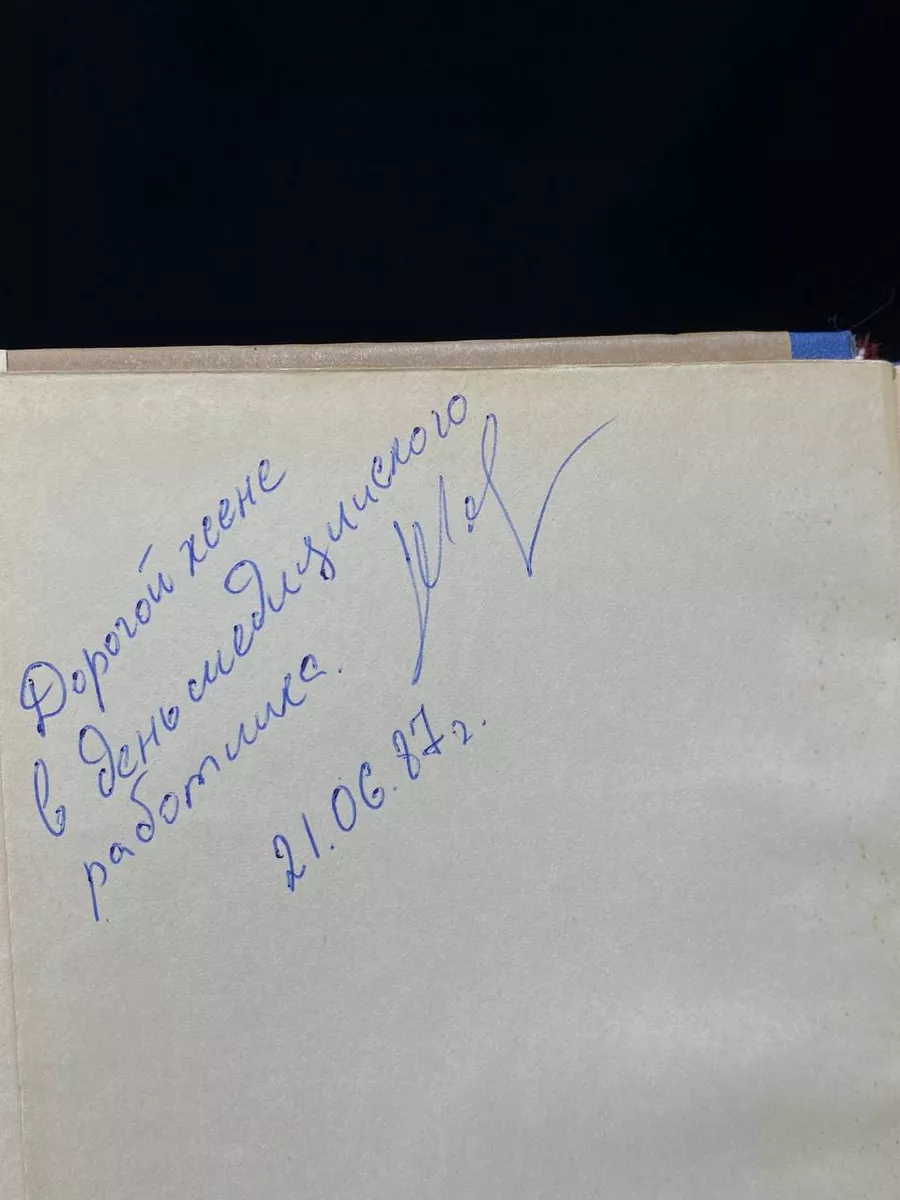 Дорогой жене
в день медицинского
работника.
21.06.87г.